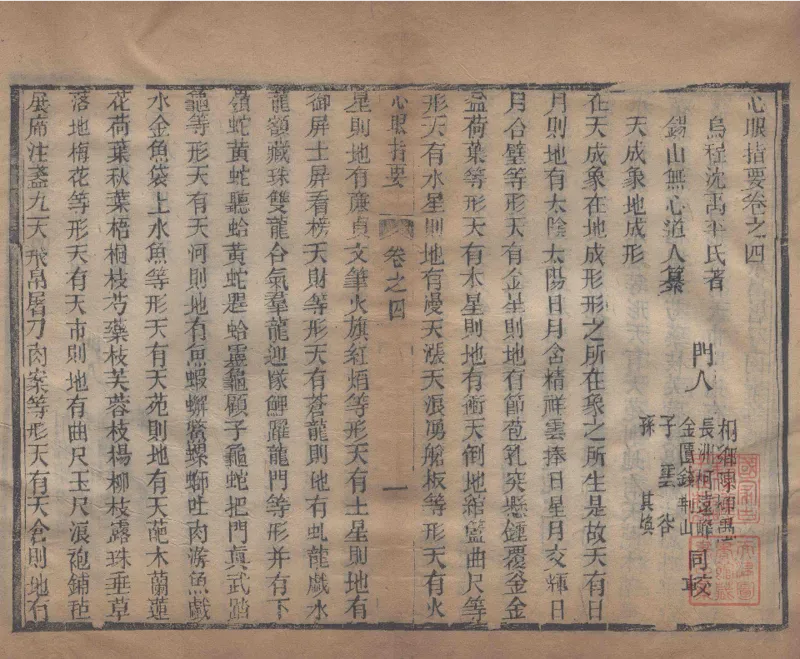 心眼指要卷之四
烏程沈禹平氏著
錫山無心道人纂
門人
長洲柯遠峰
金匱錢荊山
子
孫 其煥
同校
天成象地成形
在天成象在地成形形之所在象之所生是故天有日
月則地有太陰太陽日月含精祥雲捧日星月交輝日
月合璧等形天有金星則地有節苞乳突懸鍾覆釜金
盆荷葉等形天有木星則地有衝天倒地綰籃曲尺等
形天有水星則地有漫天漲天浪湧艙板等形天有火
心眼指要 卷之四 一
星則地有廉貞文筆火旗紅焰等形天有土星則地有
御屏土屏看榜天財等形天有蒼龍則地有虬龍戲水
龍額藏珠雙龍合氣羣龍迎隊鯉躍龍門等形並有下
嶺蛇黃蛇聽蛤黃蛇趕蛤靈龜顧子龜蛇把門真武踏
龜等形天有天河則地有魚蝦蠏鱉螺螄吐肉游魚戲
水金魚袋上水魚等形天有天苑則地有天葩木蘭蓮
花荷葉秋葉梧桐枝芍藥枝芙蓉枝楊柳枝露珠垂草
落地梅花等形天有天市則地有曲尺玉尺浪袍鋪氊
展席注盞九天飛帛屠刀肉案等形天有天倉則地有